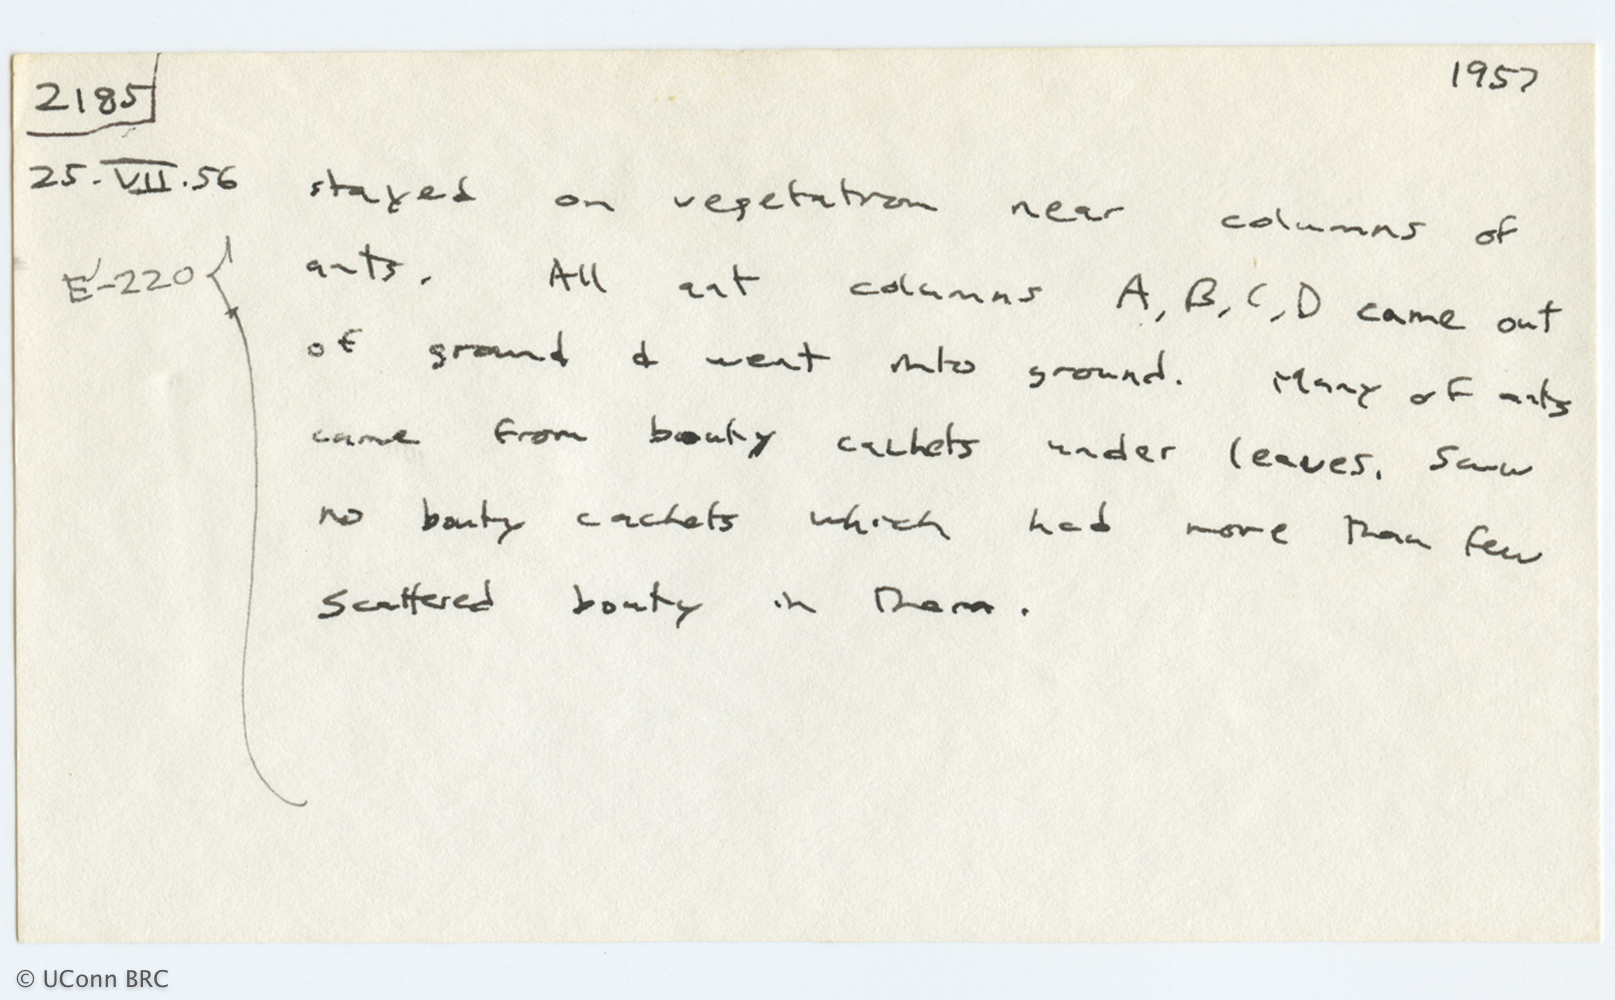 2185
1957
25.VII.56 stayed on vegetation near columns of
E-220 ants. All ant columns A, B, C, D came out
of ground & went into ground. Many of ants
came from booty cachets under leaves. Saw
no booty cachets which had more than few
scattered booty in them.
© UConn BRC